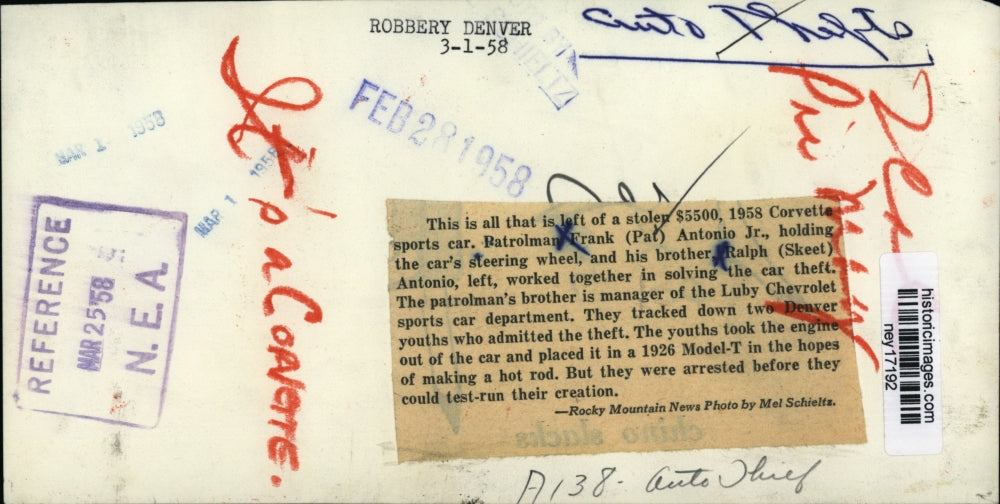 ROBBERY DENVER
3-1-58
Auto Theft
FEB 28 1958
MAR 1 1958
MAR 1 1958
REFERENCE
MAR 25 '58
N. E. A.
It's a CORVETTE.
This is all that is left of a stolen $5500, 1958 Corvette
sports car. Patrolman Frank (Pat) Antonio Jr., holding
the car's steering wheel, and his brother, Ralph (Skeet)
Antonio, left, worked together in solving the car theft.
The patrolman's brother is manager of the Luby Chevrolet
sports car department. They tracked down two Denver
youths who admitted the theft. The youths took the engine
out of the car and placed it in a 1926 Model-T in the hopes
of making a hot rod. But they were arrested before they
could test-run their creation.
—Rocky Mountain News Photo by Mel Schieltz.
chino slacks
historicimages.com
ney17192
A138- Auto Thief